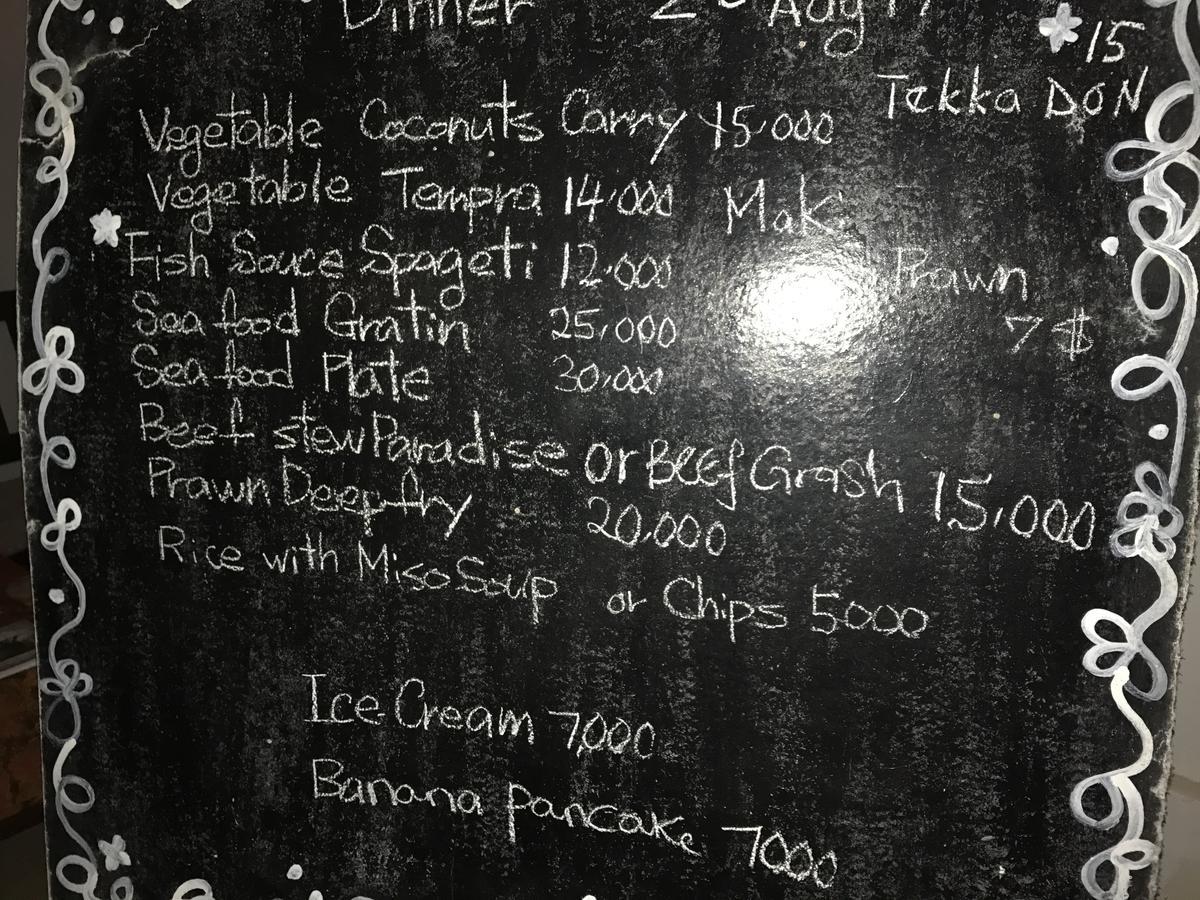 Dinner 2 Aug 17
15
Tekka DON
Vegetable Coconuts Carry 15,000
Vegetable Tempra 14,000
Mak
Fish Sauce Spageti 12.000
Prawn
7 $
Sea food Gratin 25,000
Sea food Plate 30,000
Beef stew Paradise or Beef Grash 15,000
Prawn Deep fry 20,000
Rice with Miso Soup or Chips 5000
Ice Cream 7,000
Banana pancake 7000